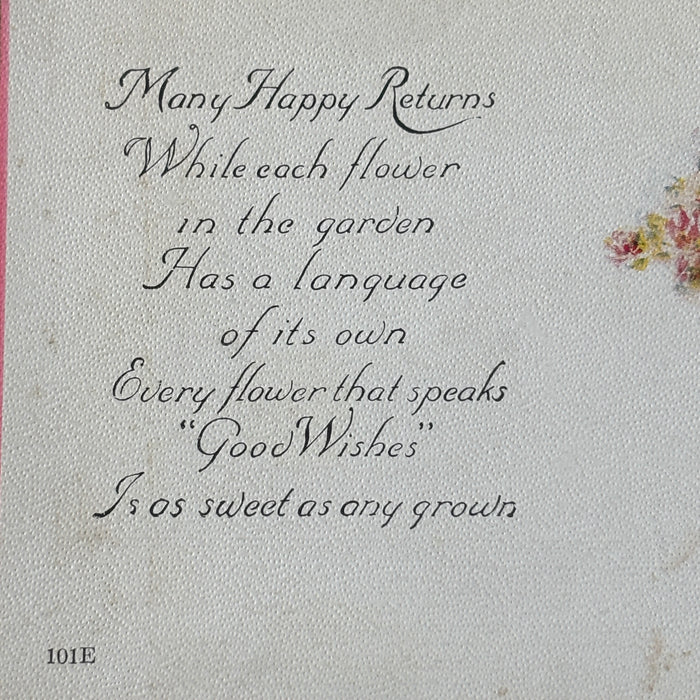 Many Happy Returns
While each flower
in the garden
Has a language
of its own
Every flower that speaks
"Good Wishes"
Is as sweet as any grown
101E